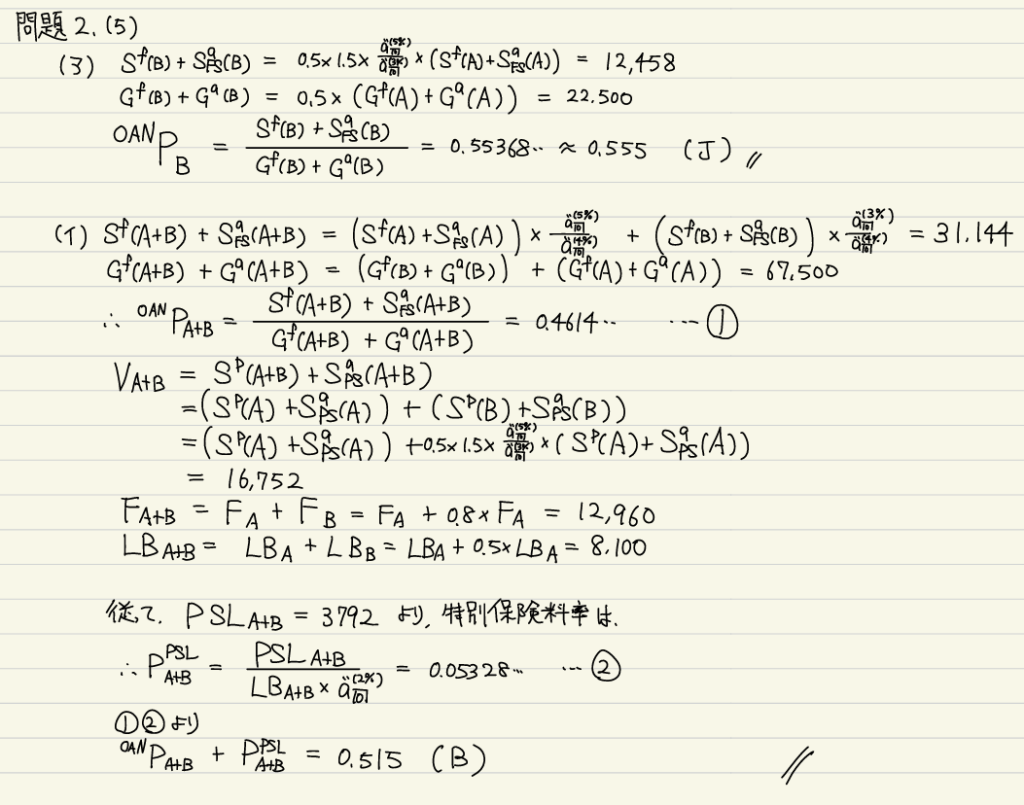 問題2.(5)
(ウ) S^f(B) + S^a_FS(B) = 0.5×1.5× ä_10^(5%)/ä_10^(3%) × (S^f(A)+S^a_FS(A)) = 12,458
G^f(B) + G^a(B) = 0.5× (G^f(A) + G^a(A)) = 22.500
^OAN P_B = (S^f(B) + S^a_FS(B))/(G^f(B) + G^a(B)) = 0.55368‥ ≈ 0.555 (J) //
(イ) S^f(A+B) + S^a_FS(A+B) = (S^f(A) + S^a_FS(A)) × ä_10^(5%)/ä_10^(4%) + (S^f(B) + S^a_FS(B)) × ä_10^(3%)/ä_10^(4%) = 31.144
G^f(A+B) + G^a(A+B) = (G^f(B) + G^a(B)) + (G^f(A) + G^a(A)) = 67,500
∴ ^OAN P_A+B = (S^f(A+B) + S^a_FS(A+B))/(G^f(A+B) + G^a(A+B)) = 0.4614‥ …①
V_A+B = S^p(A+B) + S^a_PS(A+B)
=(S^p(A) + S^a_PS(A)) + (S^p(B) + S^a_PS(B))
=(S^p(A) + S^a_PS(A)) + 0.5×1.5× ä_10^(5%)/ä_10^(3%) × (S^p(A) + S^a_PS(A))
= 16,752
F_A+B = F_A + F_B = F_A + 0.8× F_A = 12,960
LB_A+B = LB_A + LB_B = LB_A + 0.5×LB_A = 8.100
従て. PSL_A+B = 3792 より, 特別保険料率は.
∴ P^PSL_A+B = PSL_A+B/(LB_A+B × ä_10^(2%)) = 0.05328‥ …②
①②より
^OAN P_A+B + P^PSL_A+B = 0.515 (B) //